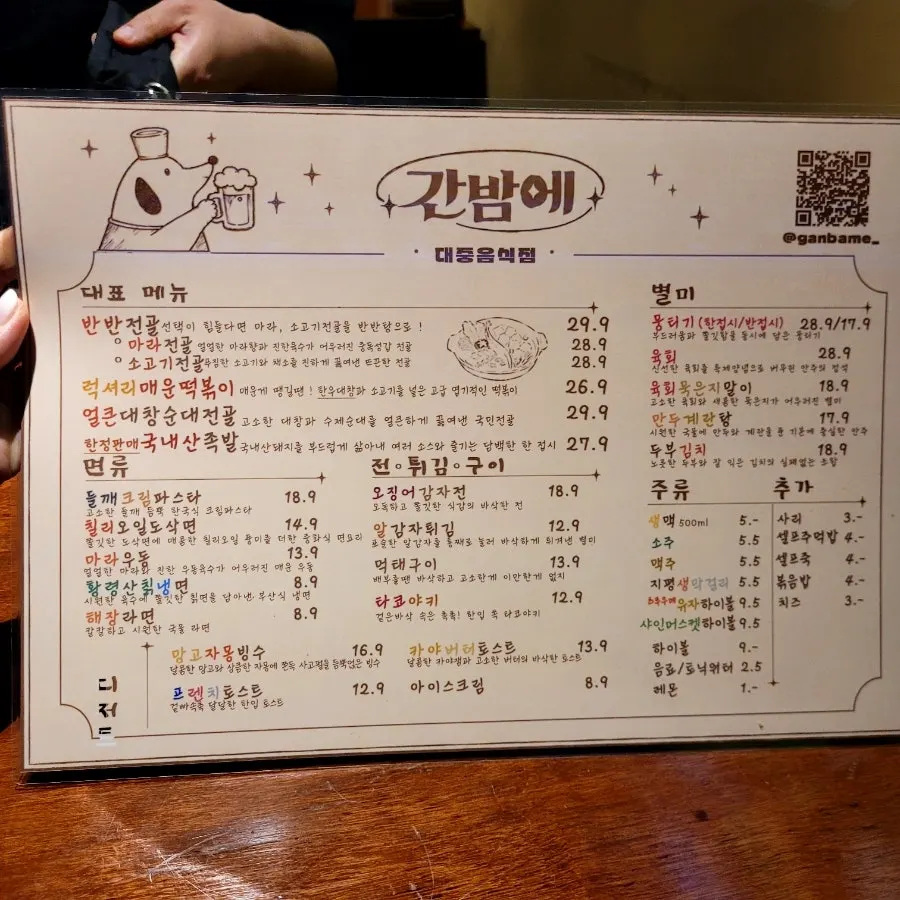 간밤에
대중음식점
@ganbame_
대표 메뉴
반반전골 선택이 힘들다면 마라, 소고기전골을 반반탕으로 ! 29.9
마라전골 얼얼한 마라향과 진한육수가 어우러진 중독성갑 전골 28.9
소고기전골 푸짐한 소고기와 채소를 진하게 끓여낸 뜨끈한 전골 28.9
럭셔리매운떡볶이 매운게 땡길땐 ! 한우대창과 소고기를 넣은 고급 엽기적인 떡볶이 26.9
얼큰대창순대전골 고소한 대창과 수제순대를 얼큰하게 끓여낸 국민전골 29.9
한정판매국내산족발 국내산돼지를 부드럽게 삶아내 여러 소스와 즐기는 담백한 한 접시 27.9
면류
들깨크림파스타 18.9
고소한 들깨 듬뿍 한국식 크림파스타
칠리오일도삭면 14.9
쫄깃한 도삭면에 매콤한 칠리오일 풍미를 더한 중화식 면요리
마라우동 13.9
얼얼한 마라와 진한 우동육수가 어우러진 매운 우동
황령산칡냉면 8.9
시원한 육수에 쫄깃한 칡면을 담아낸 부산식 냉면
해장라면 8.9
칼칼하고 시원한 국물 라면
전 튀김 구이
오징어감자전 18.9
오독하고 쫄깃한 식감의 바삭한 전
알감자튀김 12.9
포슬한 알감자를 통째로 눌러 바삭하게 튀겨낸 별미
먹태구이 13.9
배부를땐 바삭하고 고소한게 이만한게 없지
타코야키 12.9
겉은바삭 속은 촉촉! 한입 쏙 타코야키
별미
뭉터기 (한접시/반접시) 28.9/17.9
부드러움과 쫄깃함을 동시에 담은 뭉터기
육회 28.9
신선한 육회를 특제양념으로 버무린 안주의 정석
육회묵은지말이 18.9
고소한 육회와 새콤한 묵은지가 어우러진 별미
만두계란탕 17.9
시원한 국물에 만두와 계란을 푼 기본에 충실한 안주
두부김치 18.9
노릇한 두부와 잘 익은 김치의 실패없는 조합
주류
생맥 500ml 5.-
소주 5.5
맥주 5.5
지평생막걸리 5.5
유자하이볼 9.5
샤인머스켓하이볼 9.5
하이볼 9.-
음료/토닉워터 2.5
레몬 1.-
추가
사리 3.-
셀프주먹밥 4.-
셀프죽 4.-
볶음밥 4.-
치즈 3.-
디저트
망고자몽빙수 16.9
달콤한 망고와 상큼한 자몽에 쫀득 사고펄을 듬뿍얹은 빙수
프렌치토스트 12.9
겉빠속촉 달달한 한입 토스트
카야버터토스트 13.9
달콤한 카야잼과 고소한 버터의 바삭한 토스트
아이스크림 8.9